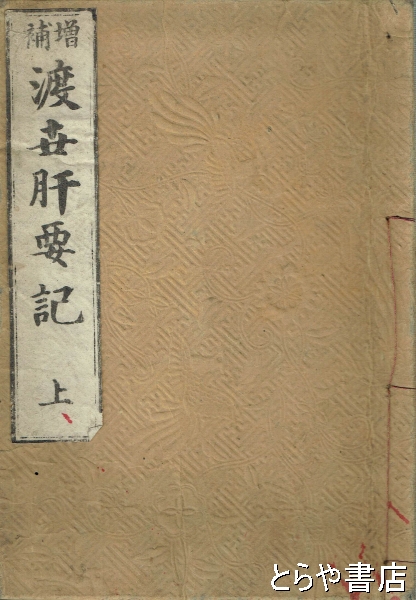 増補
渡世肝要記
上
とらや書店